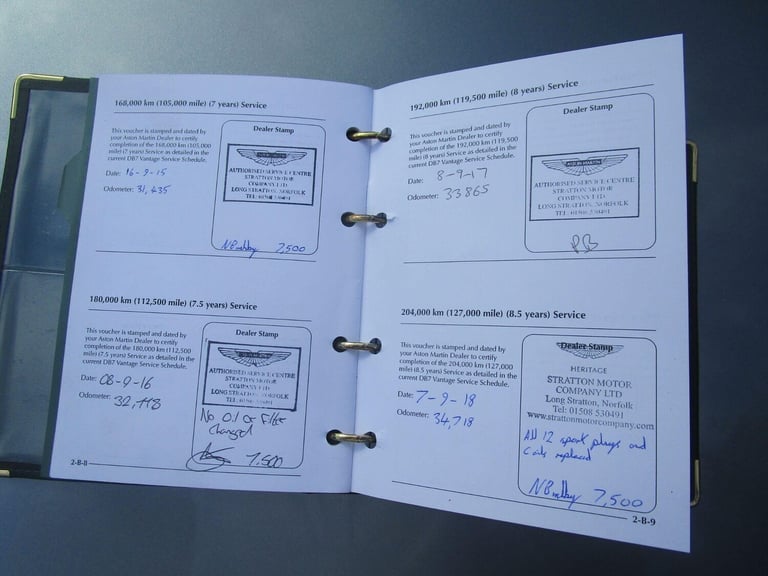 168,000 km (105,000 mile) (7 years) Service
This voucher is stamped and dated by
your Aston Martin Dealer to certify
completion of the 168,000 km (105,000
mile) (7 years) Service as detailed in the
current DB7 Vantage Service Schedule.
Date: 16-9-15
Odometer: 31,435
Dealer Stamp
ASTON MARTIN
AUTHORISED SERVICE CENTRE
STRATTON MOTOR
COMPANY LTD
LONG STRATTON, NORFOLK
TEL: 01508 530491
7,500
180,000 km (112,500 mile) (7.5 years) Service
This voucher is stamped and dated by
your Aston Martin Dealer to certify
completion of the 180,000 km (112,500
mile) (7.5 years) Service as detailed in the
current DB7 Vantage Service Schedule.
Date: 08-9-16
Odometer: 32,778
Dealer Stamp
AUTHORISED SERVICE CENTRE
STRATTON MOTOR
COMPANY LTD
LONG STRATTON, NORFOLK
TEL: 01508 530491
No Oil or Filter
change!
7,500
2-B-8
192,000 km (119,500 mile) (8 years) Service
This voucher is stamped and dated by
your Aston Martin Dealer to certify
completion of the 192,000 km (119,500
mile) (8 years) Service as detailed in the
current DB7 Vantage Service Schedule.
Date: 8-9-17
Odometer: 33865
Dealer Stamp
ASTON MARTIN
AUTHORISED SERVICE CENTRE
STRATTON MOTOR
COMPANY LTD
LONG STRATTON, NORFOLK
TEL: 01508 530491
204,000 km (127,000 mile) (8.5 years) Service
This voucher is stamped and dated by
your Aston Martin Dealer to certify
completion of the 204,000 km (127,000
mile) (8.5 years) Service as detailed in the
current DB7 Vantage Service Schedule.
Date: 7-9-18
Odometer: 34,718
Dealer Stamp
HERITAGE
STRATTON MOTOR
COMPANY LTD
Long Stratton, Norfolk
Tel: 01508 530491
www.strattonmotorcompany.com
All 12 spark plugs and
coils replaced
7,500
2-B-9